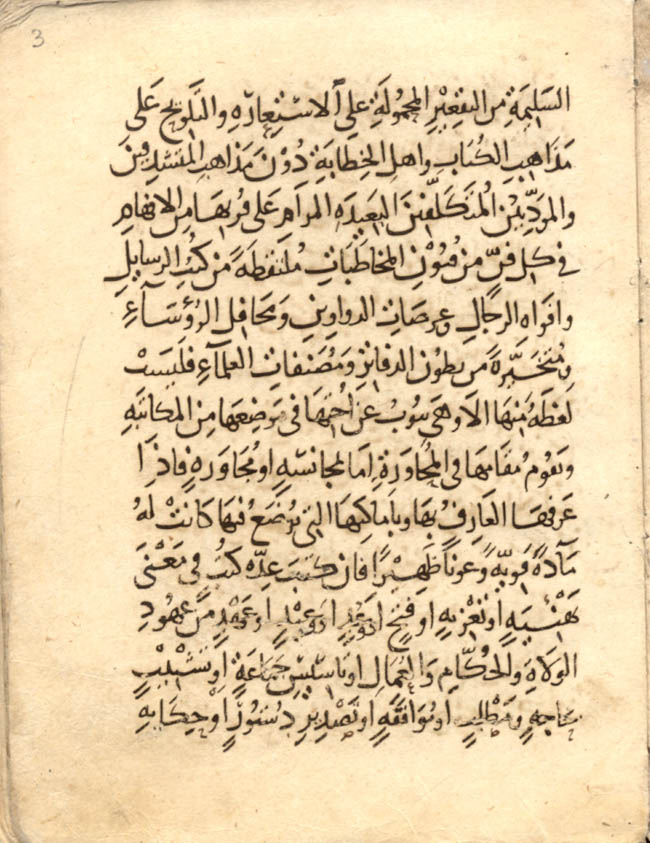 3
السَّلِيمَةِ من التقعير المحمولة على الاستعارة والتلويح على
مذاهب الكتاب واهل الخطابة دون مذاهب المتشدقين
والمتكلفين البعيدة المرام على قربها من الافهام
في كل فن من فنون المخاطبات ملتقطة من كتب الرسايل
وافواه الرجال وعرصات الدواوين ومحافل الرؤساء
ومتخيرة من بطون الدفاتر ومصنفات العلماء فليست
لفظة منها الا وهي تنوب عن اختها في موضعها من المكاتبة
وتقوم مقامها في المحاورة اما لمجانسة او مجاورة فاذا
عرفها العارف بها وباماكنها التي توضع فيها كانت له
مادة قوية وعونا ظهيرا فان كتب عدة كتب في معنى
تهنية او تعزية او فتح او وعد او وعيد او عهد من عهود
الولاة والحكام والعمال او تاسيس جماعة او تشبيب
حاجة ومطالب او موافقة او تصدير دستور او حكاية